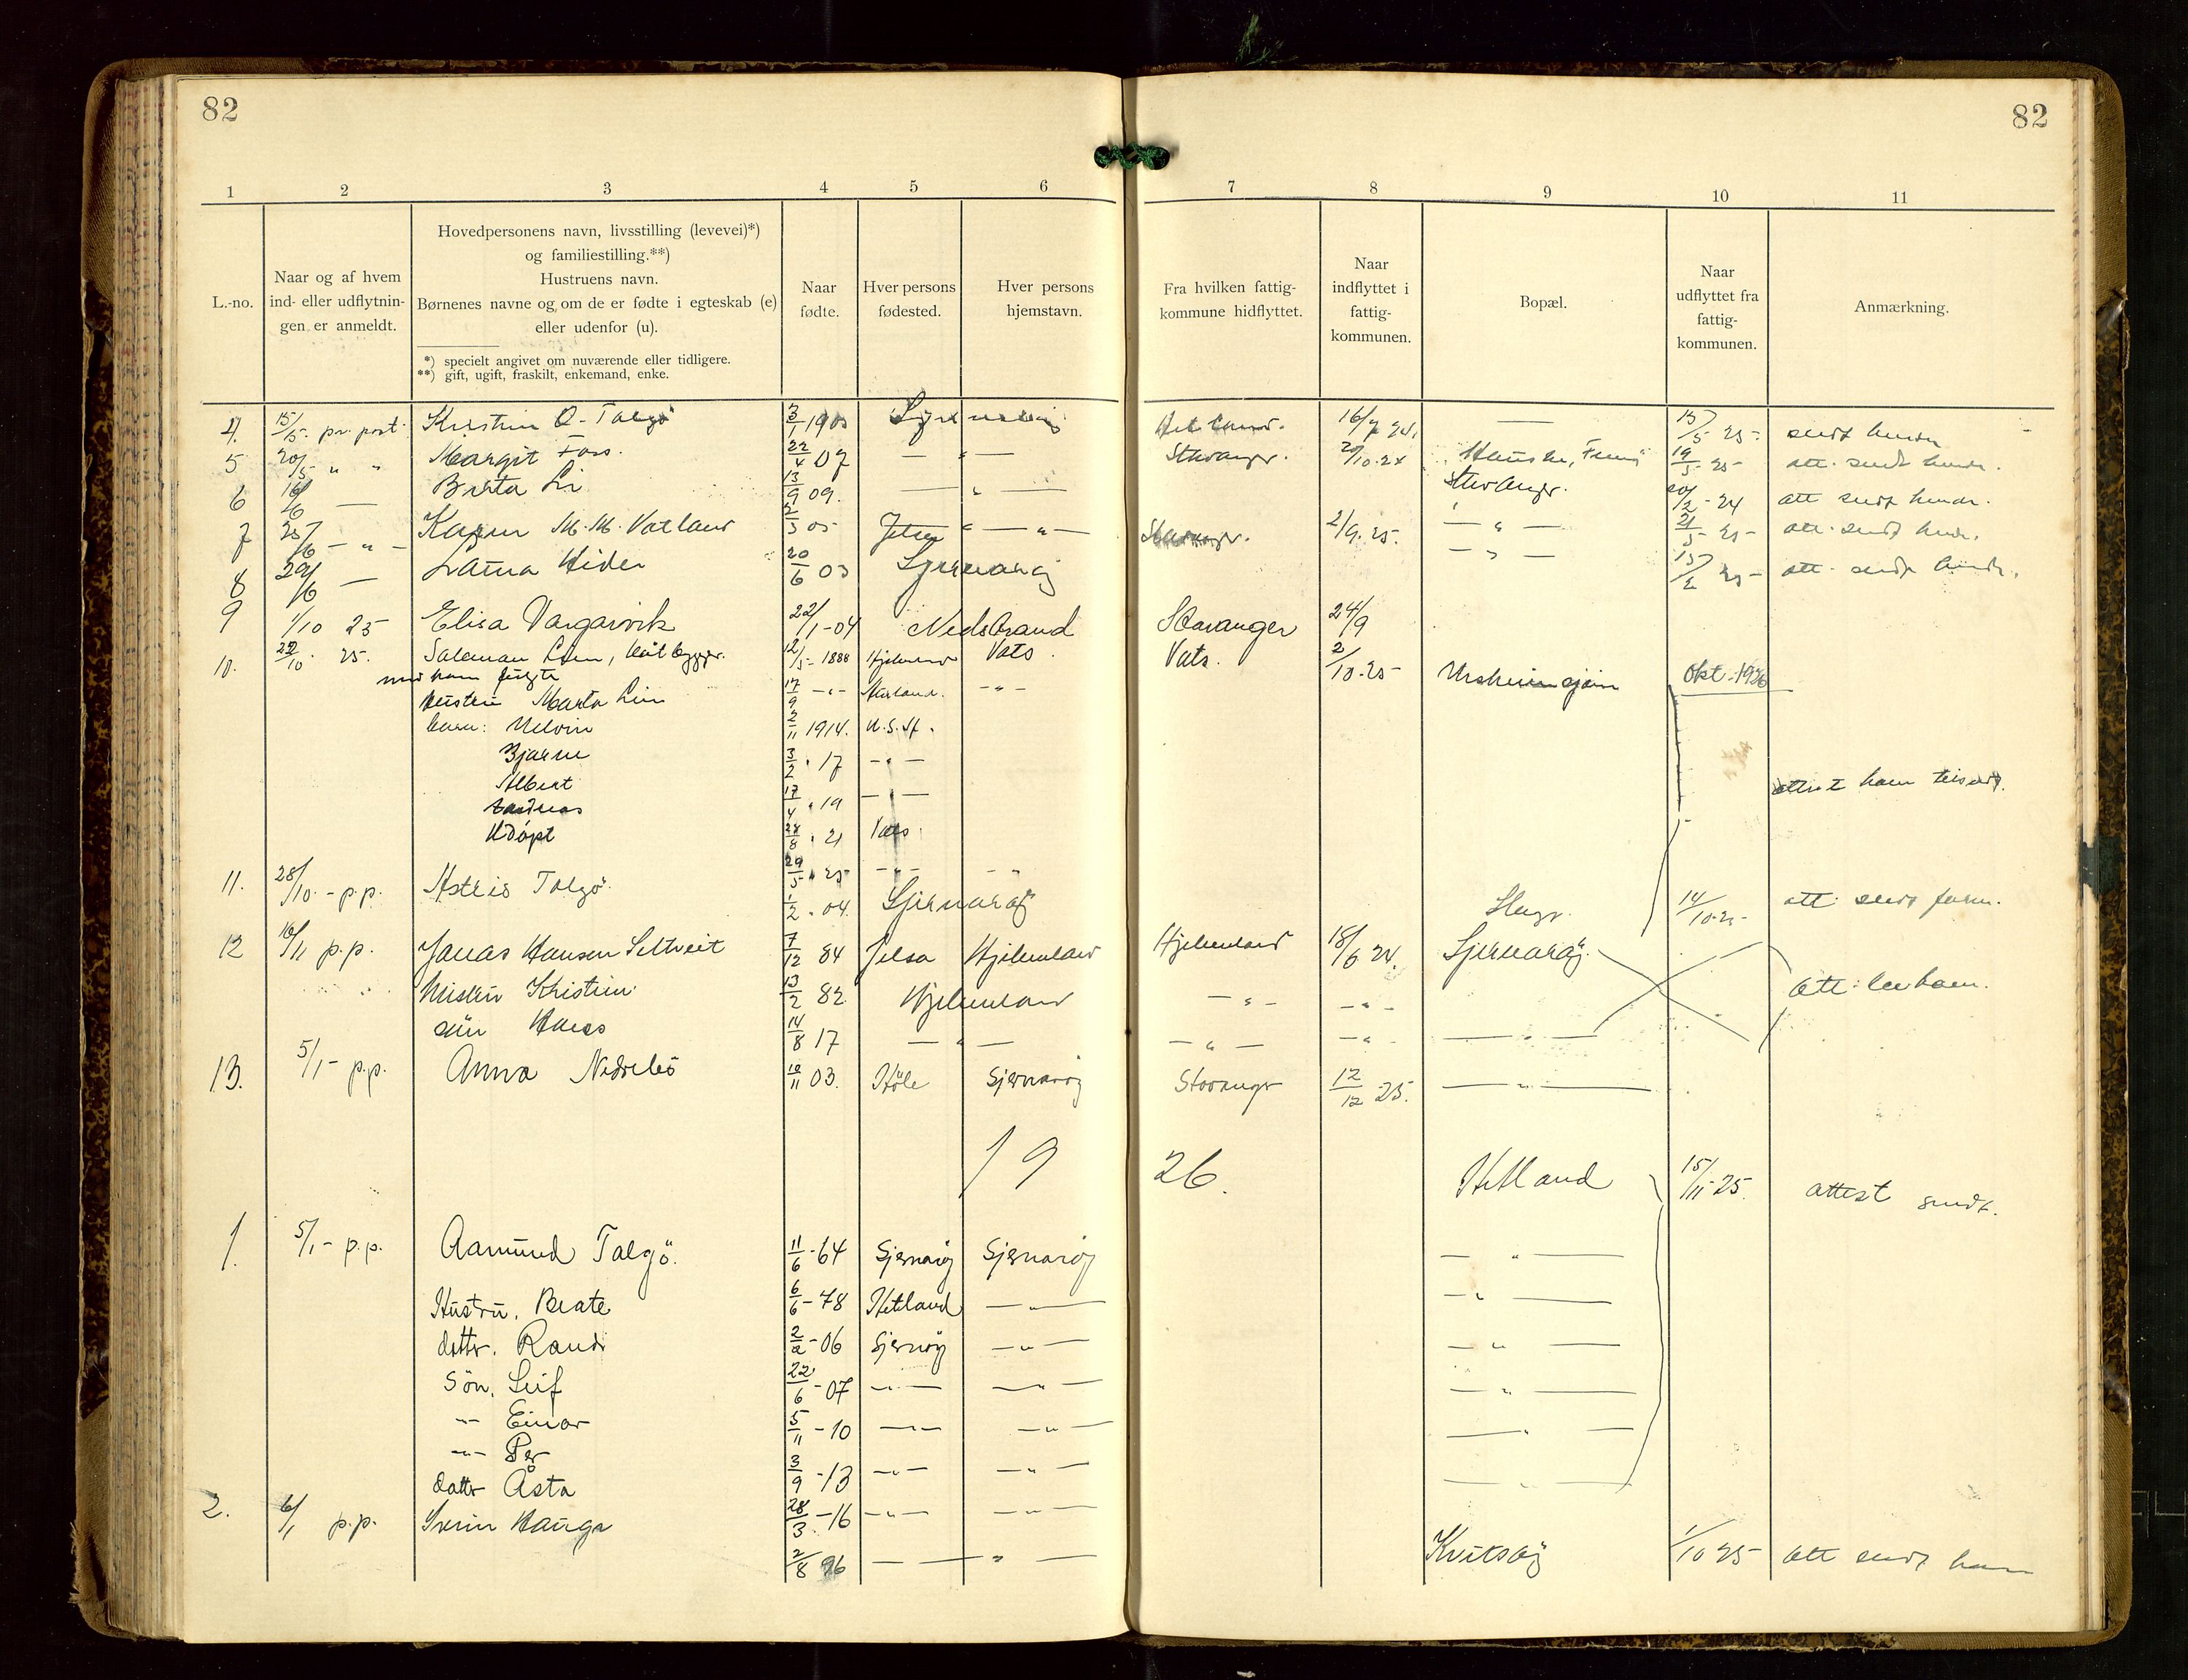 82
82
1 2 3 4 5 6 7 8 9 10 11
L.-no.
Naar og af hvem
ind- eller udflytnin-
gen er anmeldt.
Hovedpersonens navn, livsstilling (levevei)*)
og familiestilling.**)
Hustruens navn.
Børnenes navne og om de er fødte i egteskab (e)
eller udenfor (u).
*) specielt angivet om nuværende eller tidligere.
**) gift, ugift, fraskilt, enkemand, enke.
Naar
fødte.
Hver persons
fødested.
Hver persons
hjemstavn.
Fra hvilken fattig-
kommune hidflyttet.
Naar
indflyttet i
fattig-
kommunen.
Bopæl.
Naar
udflyttet fra
fattig-
kommunen.
Anmærkning.
4. 15/5 pr. post. Kristin O. Talgö 3/1 1903
5 20/5 " " Margit Foss. 22/4 07 — " — Stavanger. 19/5 25 att. sendt hende.
6 16/6 — Berta Li 13/9 09. — " — Stavanger. 20/2 - 24 att sendt hende.
7 25/6 - " - Karen M. M. Vatland 2/3 05 Jelsa " — " — Stavanger. 2/9. 25. — " — 2/5 - 25 - att. sendt hende.
8 29/6 — Laura Hidle 20/6 03 Sjernarøy — " — 15/2 25 - att. sendt hende.
9 1/10 25 Elisa Vargarvik 22/1 - 04 Nedstrand Stavanger 24/9
10. 22/10 . 25. Salamon Lien, båtbygger. 12/5 - 1888 Hjelmeland Vats. Vats. 2/10 - 25 - Okt. 1926
med ham fulgte
hustru Marta Lien 17/9 - " - - " -
barn: Melvin 2/11 1914. U.S.A.
Bjarne 3/2 . 17 - " -
Albert 17/4 . 19 — " —
Andreas 24/8 . 21 Vats
Udöpt 29/5 . 25 - " - - " -
11. 28/10 - p.p. Astrid Talgö 1/2 . 04. Sjernarøy 14/10 - 25 -
12 16/11 p.p. Jonas Hansen Seltveit 7/12 84 Jelsa Hjelmeland Hjelmeland 18/6 24. Sjernarøy.
Hustru Kristine 13/2 82 Hjelmeland - " - - " -
sön Hans 14/8 17 — " — — " — - " - — " —
13. 5/1 - p.p. Anna Nedrebö 10/11 03. Höle Sjernaröy Stavanger 12/12 25. — " —
19 26.
1. 5/1 - p.p. Aamund Talgö. 11/6 - 64 Sjernaröy Sjernaröy Hetland 15/11 - 25. attest sendt.
Hustru. Beate 6/6 - 78 Hetland — " — — " —
datter. Randi 2/2 - 06 Sjernöy - " — - " —
Sön. Leif 22/6 - 07 - " — — " — - " —
- " - Einar 5/11 - 10 — " — — " — - " —
- " - Per 3/9 - 13 - " — — " — — " —
datter Åsta 28/3 - 16 - " — — " — — " —
2. 6/1 p.p. 2/8 96 — " — Kvitsöy 1/10 25 att sendt ham